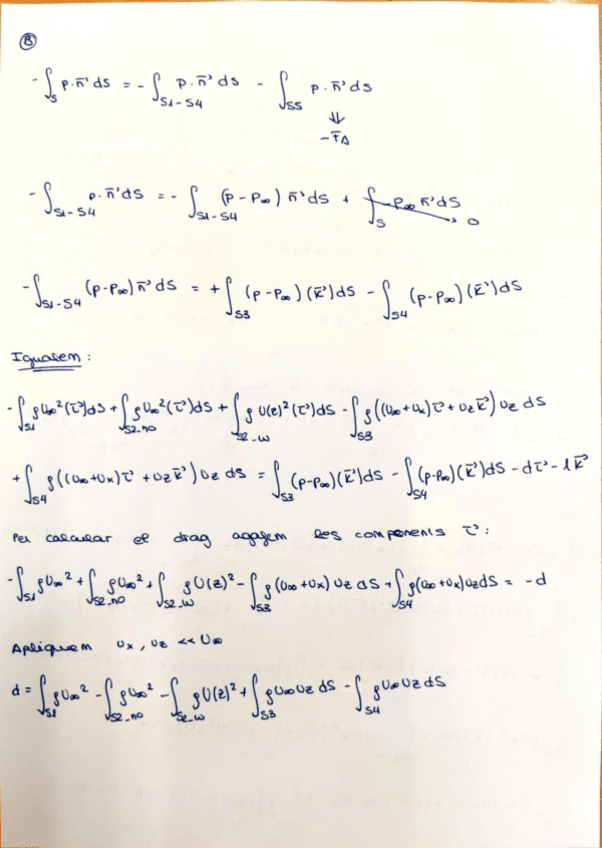 B
- ∫_S p · n⃗ dS = - ∫_{S1-S4} p · n⃗ dS - ∫_{S5} p · n⃗ dS
⇓
- F_A
- ∫_{S1-S4} p · n⃗ dS = - ∫_{S1-S4} (p - p∞) n⃗ dS + ∫_S -p∞ n⃗ dS → 0
- ∫_{S1-S4} (p-p∞) n⃗ dS = + ∫_{S3} (p-p∞) (k⃗) dS - ∫_{S4} (p-p∞) (k⃗) dS
Igualem :
- ∫_{S1} ρ U∞² (i⃗) dS + ∫_{S2_no} ρ U∞² (i⃗) dS + ∫_{S2_w} ρ U(z)² (i⃗) dS - ∫_{S3} ρ ((U∞+Ux) i⃗ + Uz k⃗) Uz dS
+ ∫_{S4} ρ ((U∞+Ux) i⃗ + Uz k⃗) Uz dS = ∫_{S3} (p-p∞) (k⃗) dS - ∫_{S4} (p-p∞) (k⃗) dS - d i⃗ - l k⃗
Per calcular el drag agafem les components i⃗ :
- ∫_{S1} ρ U∞² + ∫_{S2_no} ρ U∞² + ∫_{S2_w} ρ U(z)² - ∫_{S3} ρ (U∞+Ux) Uz dS + ∫_{S4} ρ (U∞+Ux) Uz dS = -d
Apliquem Ux, Uz << U∞
d = ∫_{S1} ρ U∞² - ∫_{S2_no} ρ U∞² - ∫_{S2_w} ρ U(z)² + ∫_{S3} ρ U∞ Uz dS - ∫_{S4} ρ U∞ Uz dS